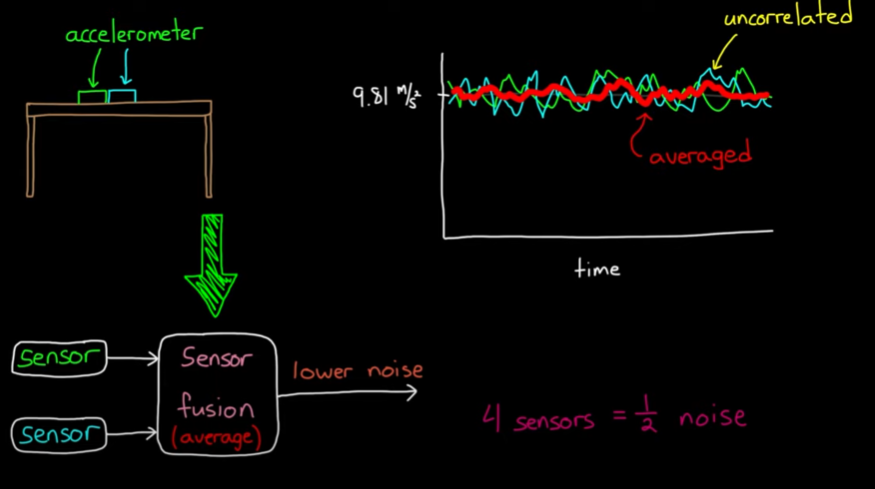 accelerometer
uncorrelated
9.81 m/s²
averaged
time
Sensor
Sensor
Sensor
fusion
(average)
lower noise
4 sensors = 1/2 noise